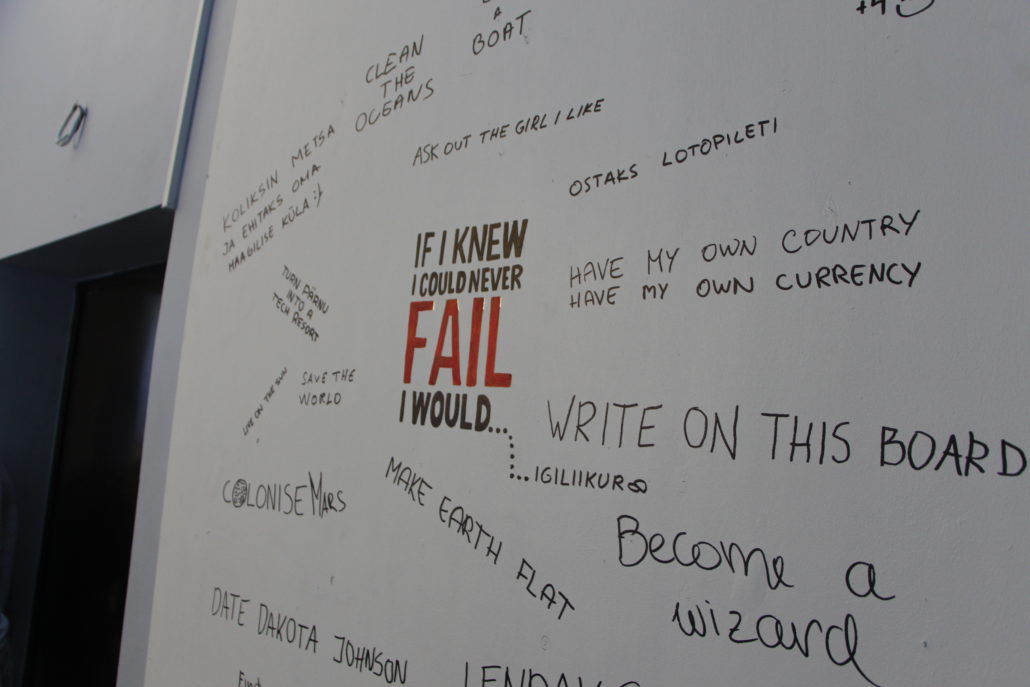 A
BOAT
CLEAN
THE
OCEANS
ASK OUT THE GIRL I LIKE
OSTAKS LOTOPILETI
KOLIKSIN METSA
JA EHITAKS OMA
MAAGILISE KÜLA :)
IF I KNEW
I COULD NEVER
FAIL
I WOULD...
HAVE MY OWN COUNTRY
HAVE MY OWN CURRENCY
TURN PÄRNU
INTO A
TECH RESORT
LIVE ON THE SUN
SAVE THE
WORLD
WRITE ON THIS BOARD
...IGILIIKUR∞
COLONISE MARS
MAKE EARTH FLAT
Become a
wizard
DATE DAKOTA JOHNSON